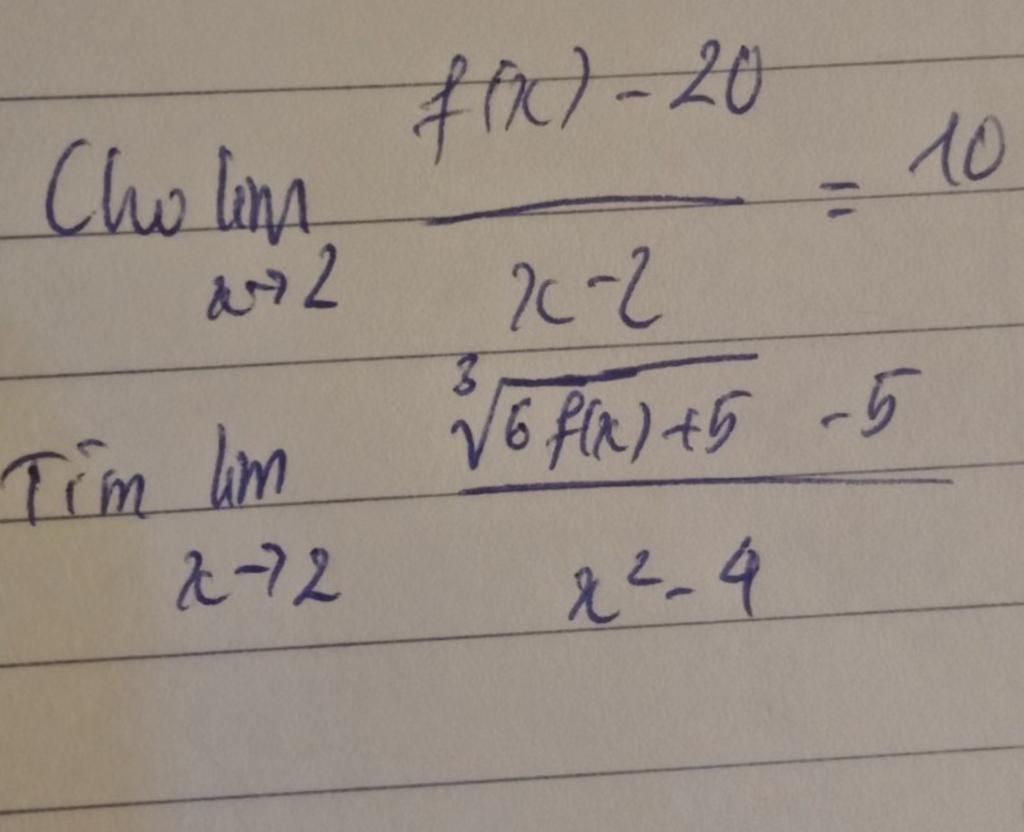 Cho lim x→2 (f(x) - 20)/(x - 2) = 10
Tìm lim x→2 (∛(6 f(x) + 5) - 5)/(x² - 4)